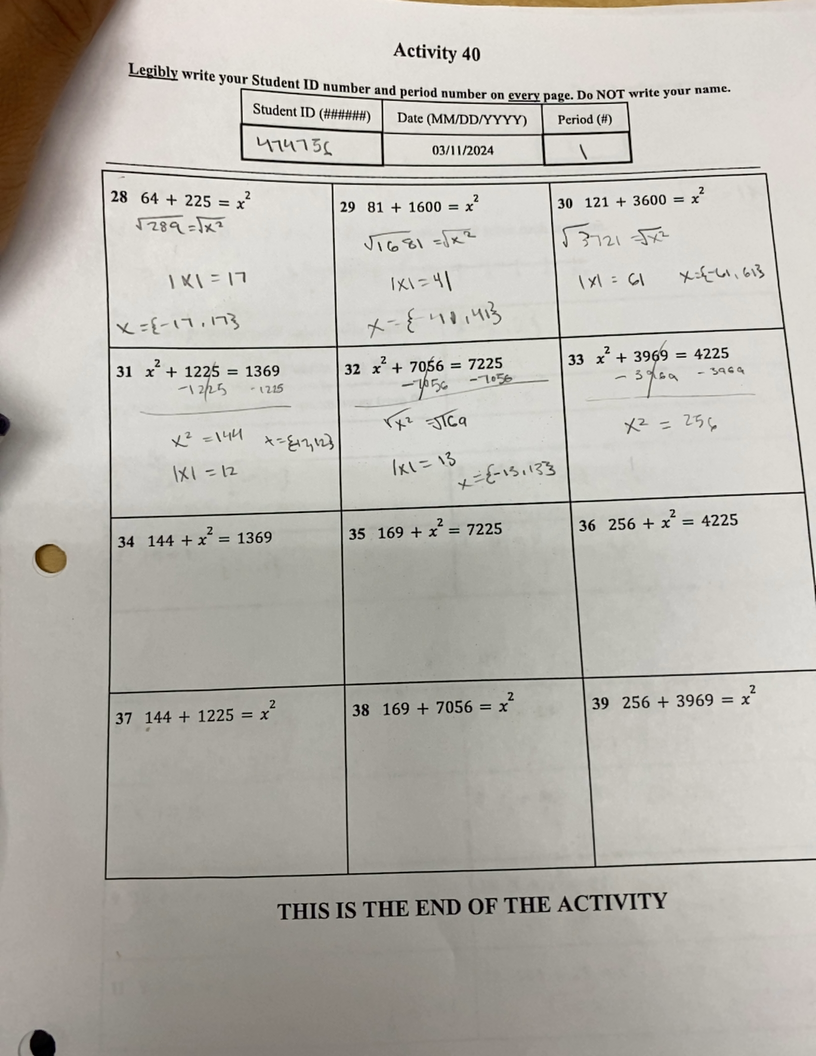 Activity 40
Legibly write your Student ID number and period number on every page. Do NOT write your name.
Student ID (######) Date (MM/DD/YYYY) Period (#)
474756 03/11/2024 1
28 64 + 225 = x²
√289 = √x²
|x| = 17
x = {-17, 17}
29 81 + 1600 = x²
√1681 = √x²
|x| = 41
x = {-41, 41}
30 121 + 3600 = x²
√3721 = √x²
|x| = 61 x = {-61, 61}
31 x² + 1225 = 1369
-1225 -1225
x² = 144 x = {12, 12}
|x| = 12
32 x² + 7056 = 7225
-7056 -7056
√x² = √169
|x| = 13
x = {-13, 13}
33 x² + 3969 = 4225
- 3969 - 3969
x² = 256
34 144 + x² = 1369
35 169 + x² = 7225
36 256 + x² = 4225
37 144 + 1225 = x²
38 169 + 7056 = x²
39 256 + 3969 = x²
THIS IS THE END OF THE ACTIVITY